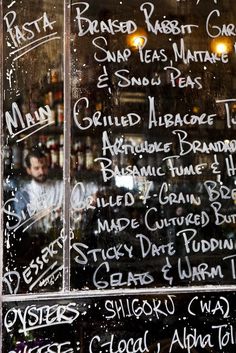 PASTA
BRAISED RABBIT GAR
SNAP PEAS, MAITAKE
& SNOW PEAS
MAIN
GRILLED ALBACORE TU
ARTICHOKE BRANDAD
BALSAMIC FUME & H
GRILLED 7-GRAIN BRE
MADE CULTURED BUT
STICKY DATE PUDDIN
DESSERTS
GELATO & WARM T
OYSTERS: SHIGOKU (WA)
LOCAL, ALPHA TOL